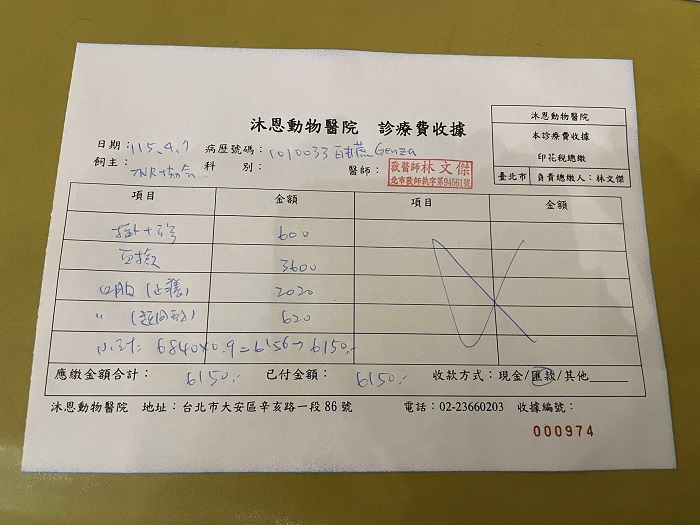 沐恩動物醫院 診療費收據
沐恩動物醫院
本診療費收據
印花稅總繳
臺北市 負責總繳人：林文傑
日期：115.4.7 病歷號碼：1010033 Genza
飼主：TNR協會 科 別： 醫師：獸醫師林文傑
北市獸師執字第94561號
項目 金額 項目 金額
掛+診 600
血檢 3600
口服 2020
" 620
小計: 6840×0.9=6156→6150.-
應繳金額合計： 6150.- 已付金額： 6150.- 收款方式：現金/匯款/其他
沐恩動物醫院 地址：台北市大安區辛亥路一段86號 電話：02-23660203 收據編號：
000974